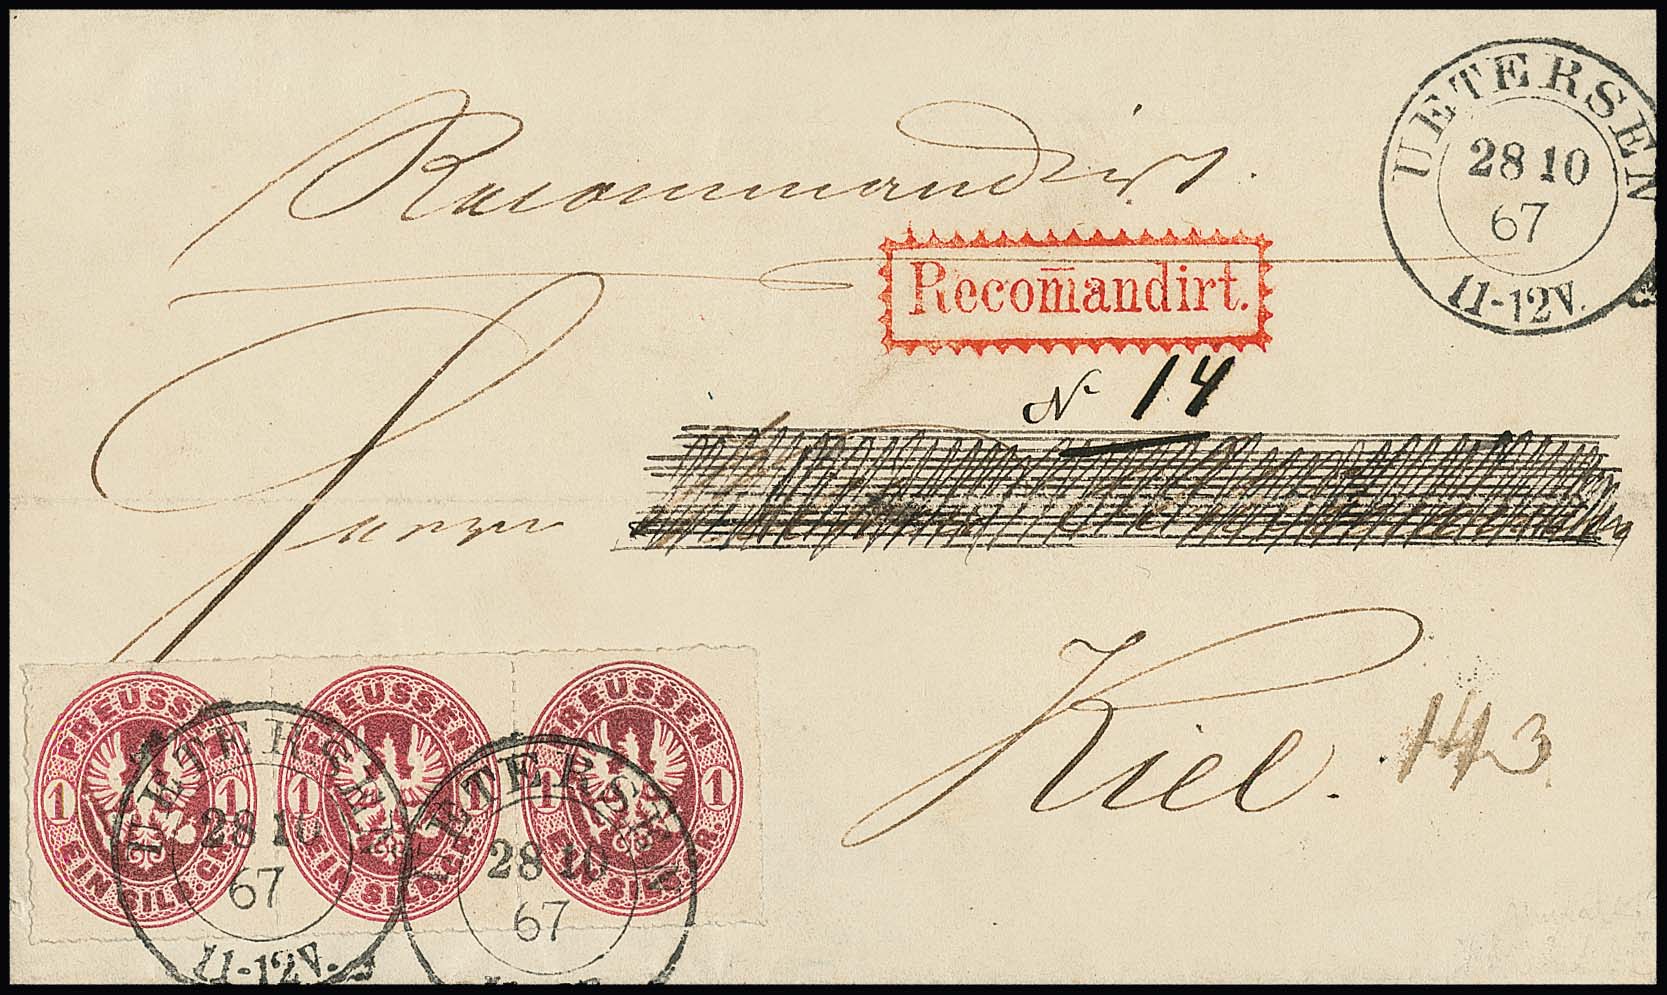 Recommandirt.
UETERSEN
28 10
67
11-12V.
Recom̅andirt.
No 14
Kiel.
143
PREUSSEN
1 1
EIN SILB.GR.
PREUSSEN
1 1
EIN SILB.GR.
PREUSSEN
1 1
EIN SILB.GR.
UETERSEN
28 10
67
11-12V.
UETERSEN
28 10
67